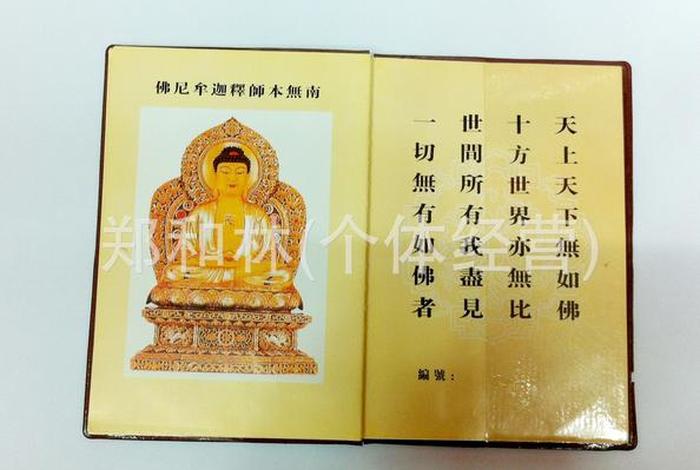 南無本師釋迦牟尼佛
天上天下無如佛
十方世界亦無比
世間所有我盡見
一切無有如佛者
編號：
郑和林(个体经营)